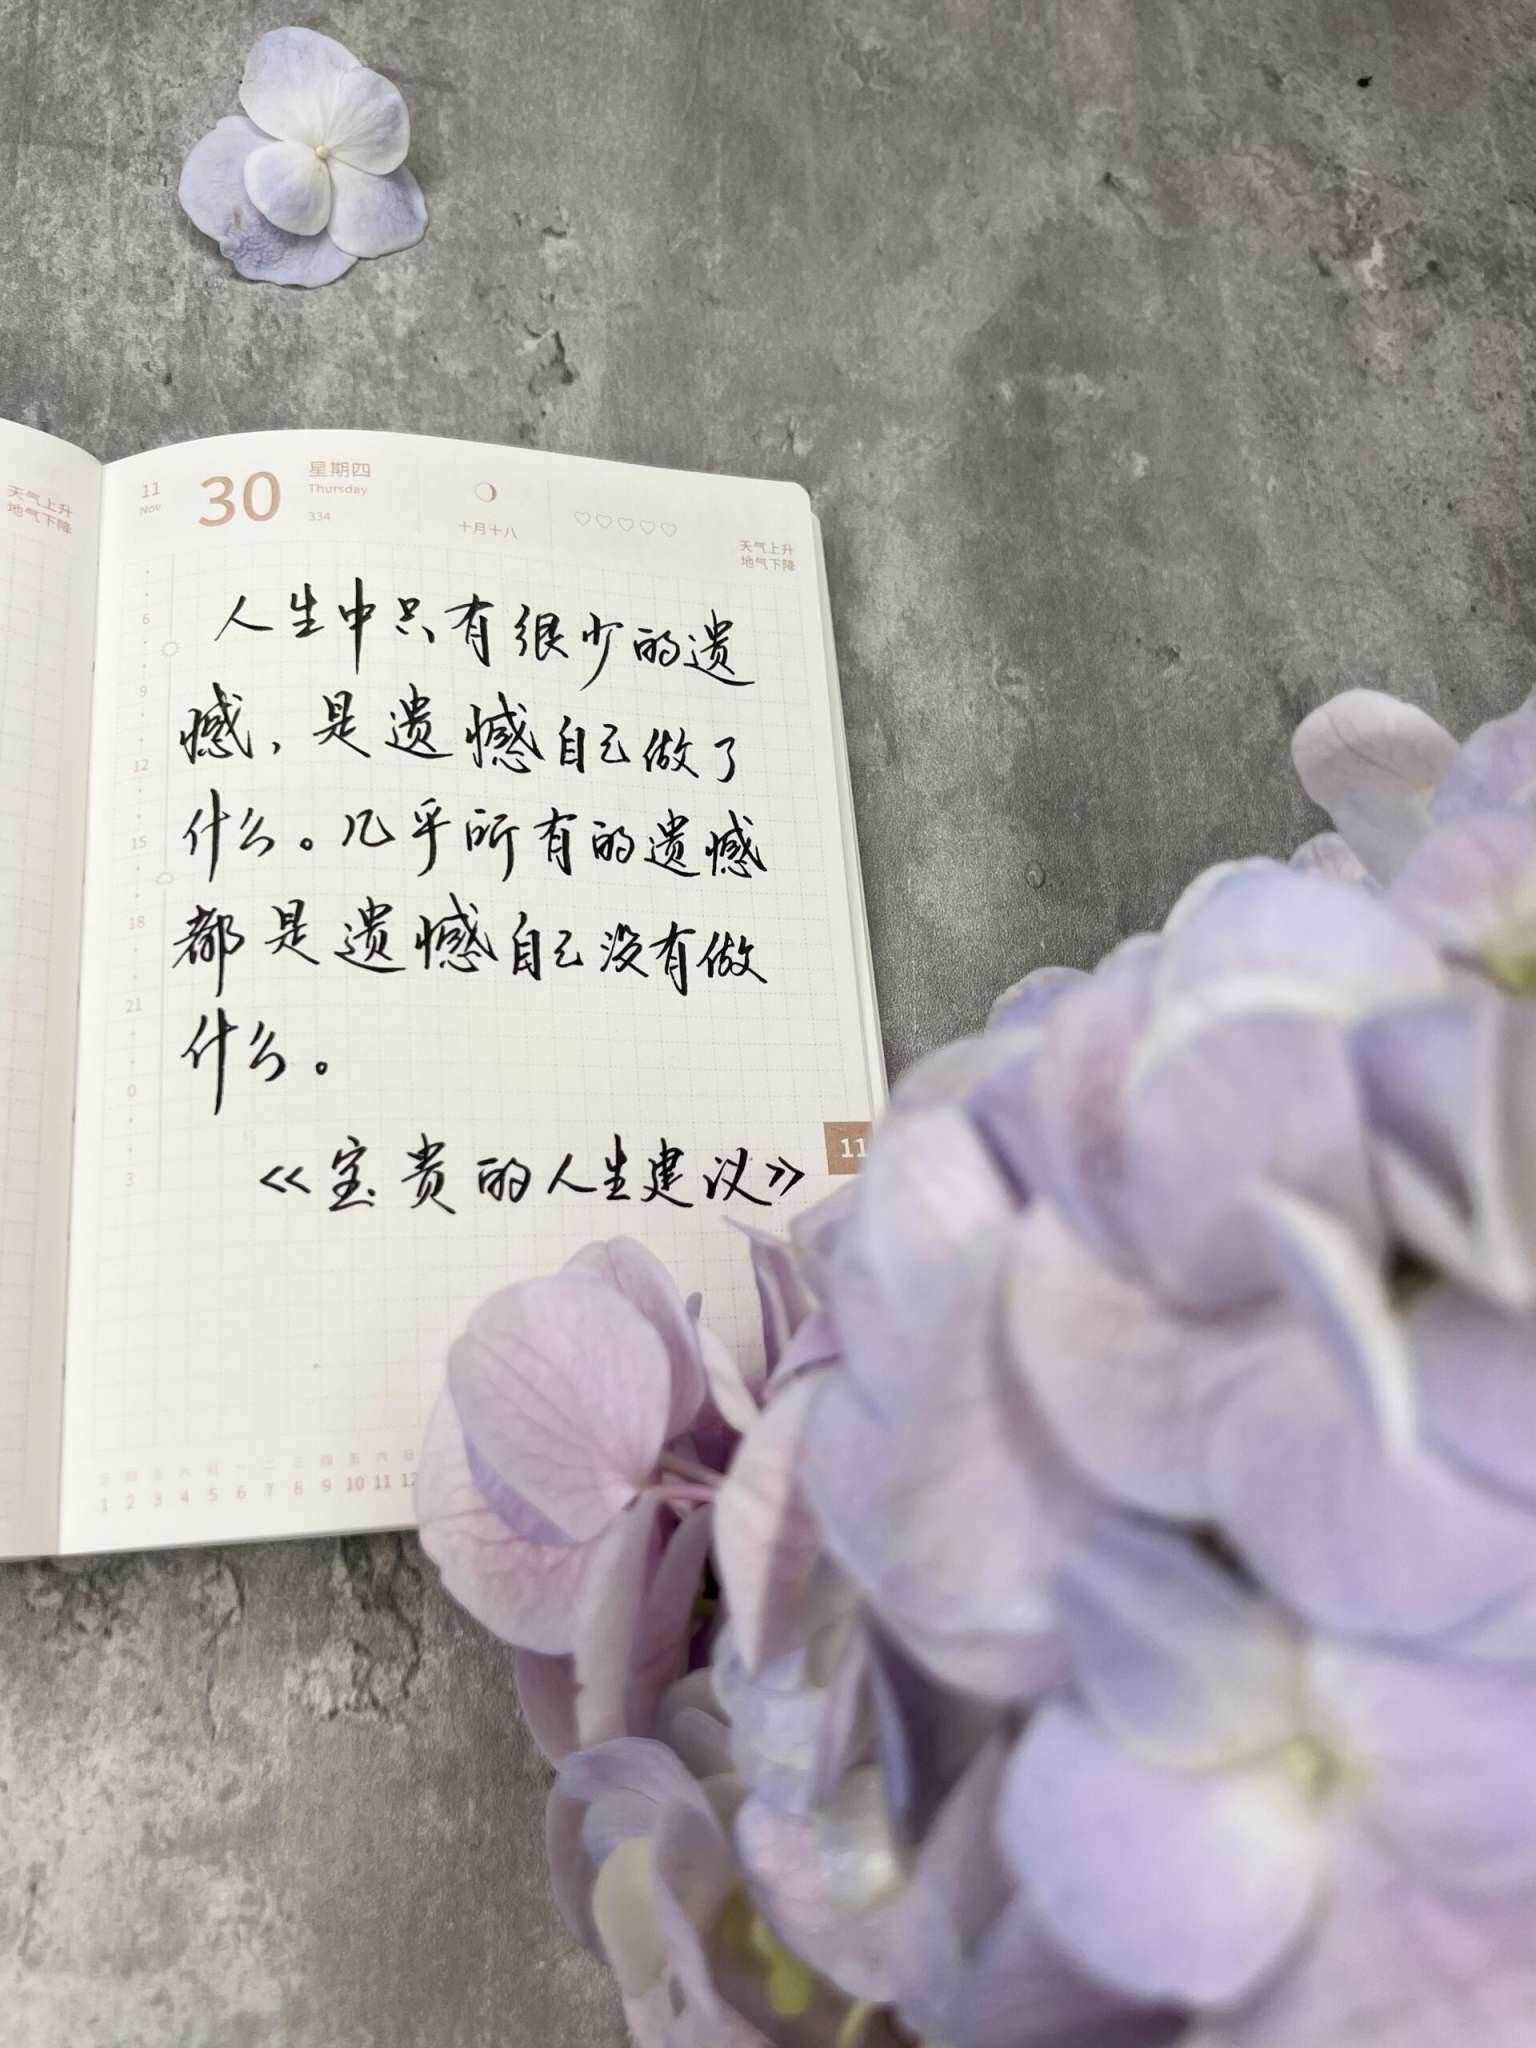 天气上升
地气下降
11
Nov
30
星期四
Thursday
334
十月十八
天气上升
地气下降
人生中只有很少的遗
憾，是遗憾自己做了
什么。几乎所有的遗憾
都是遗憾自己没有做
什么。
《宝贵的人生建议》
6
9
12
15
18
21
0
3
11
三 四 五 六 日 一 二 三 四 五 六 日
1 2 3 4 5 6 7 8 9 10 11 12